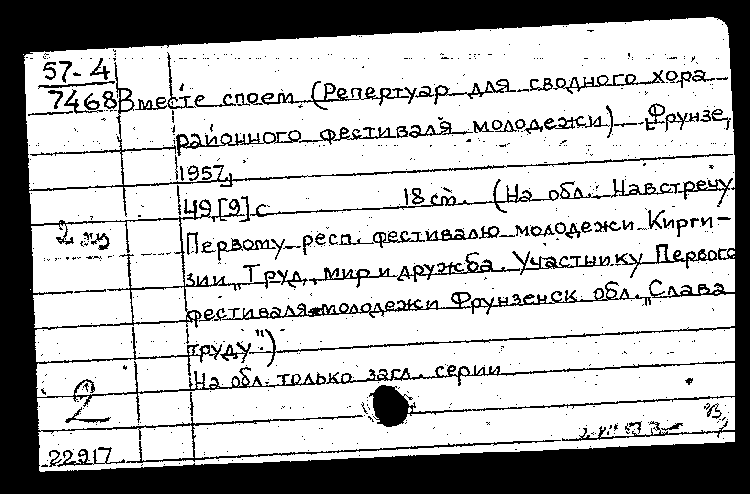 57-4
7468 Вместе споем (Репертуар для сводного хора
районного фестиваля молодежи) [Фрунзе,
1957]
49,[9] с 18 см. (На обл.: Навстречу
2 экз Первому респ. фестивалю молодежи Кирги-
зии „Труд, мир и дружба. Участнику Первого
фестиваля молодежи Фрунзенск. обл. „Слава
труду".)
На обл. только загл. серии
2
22917